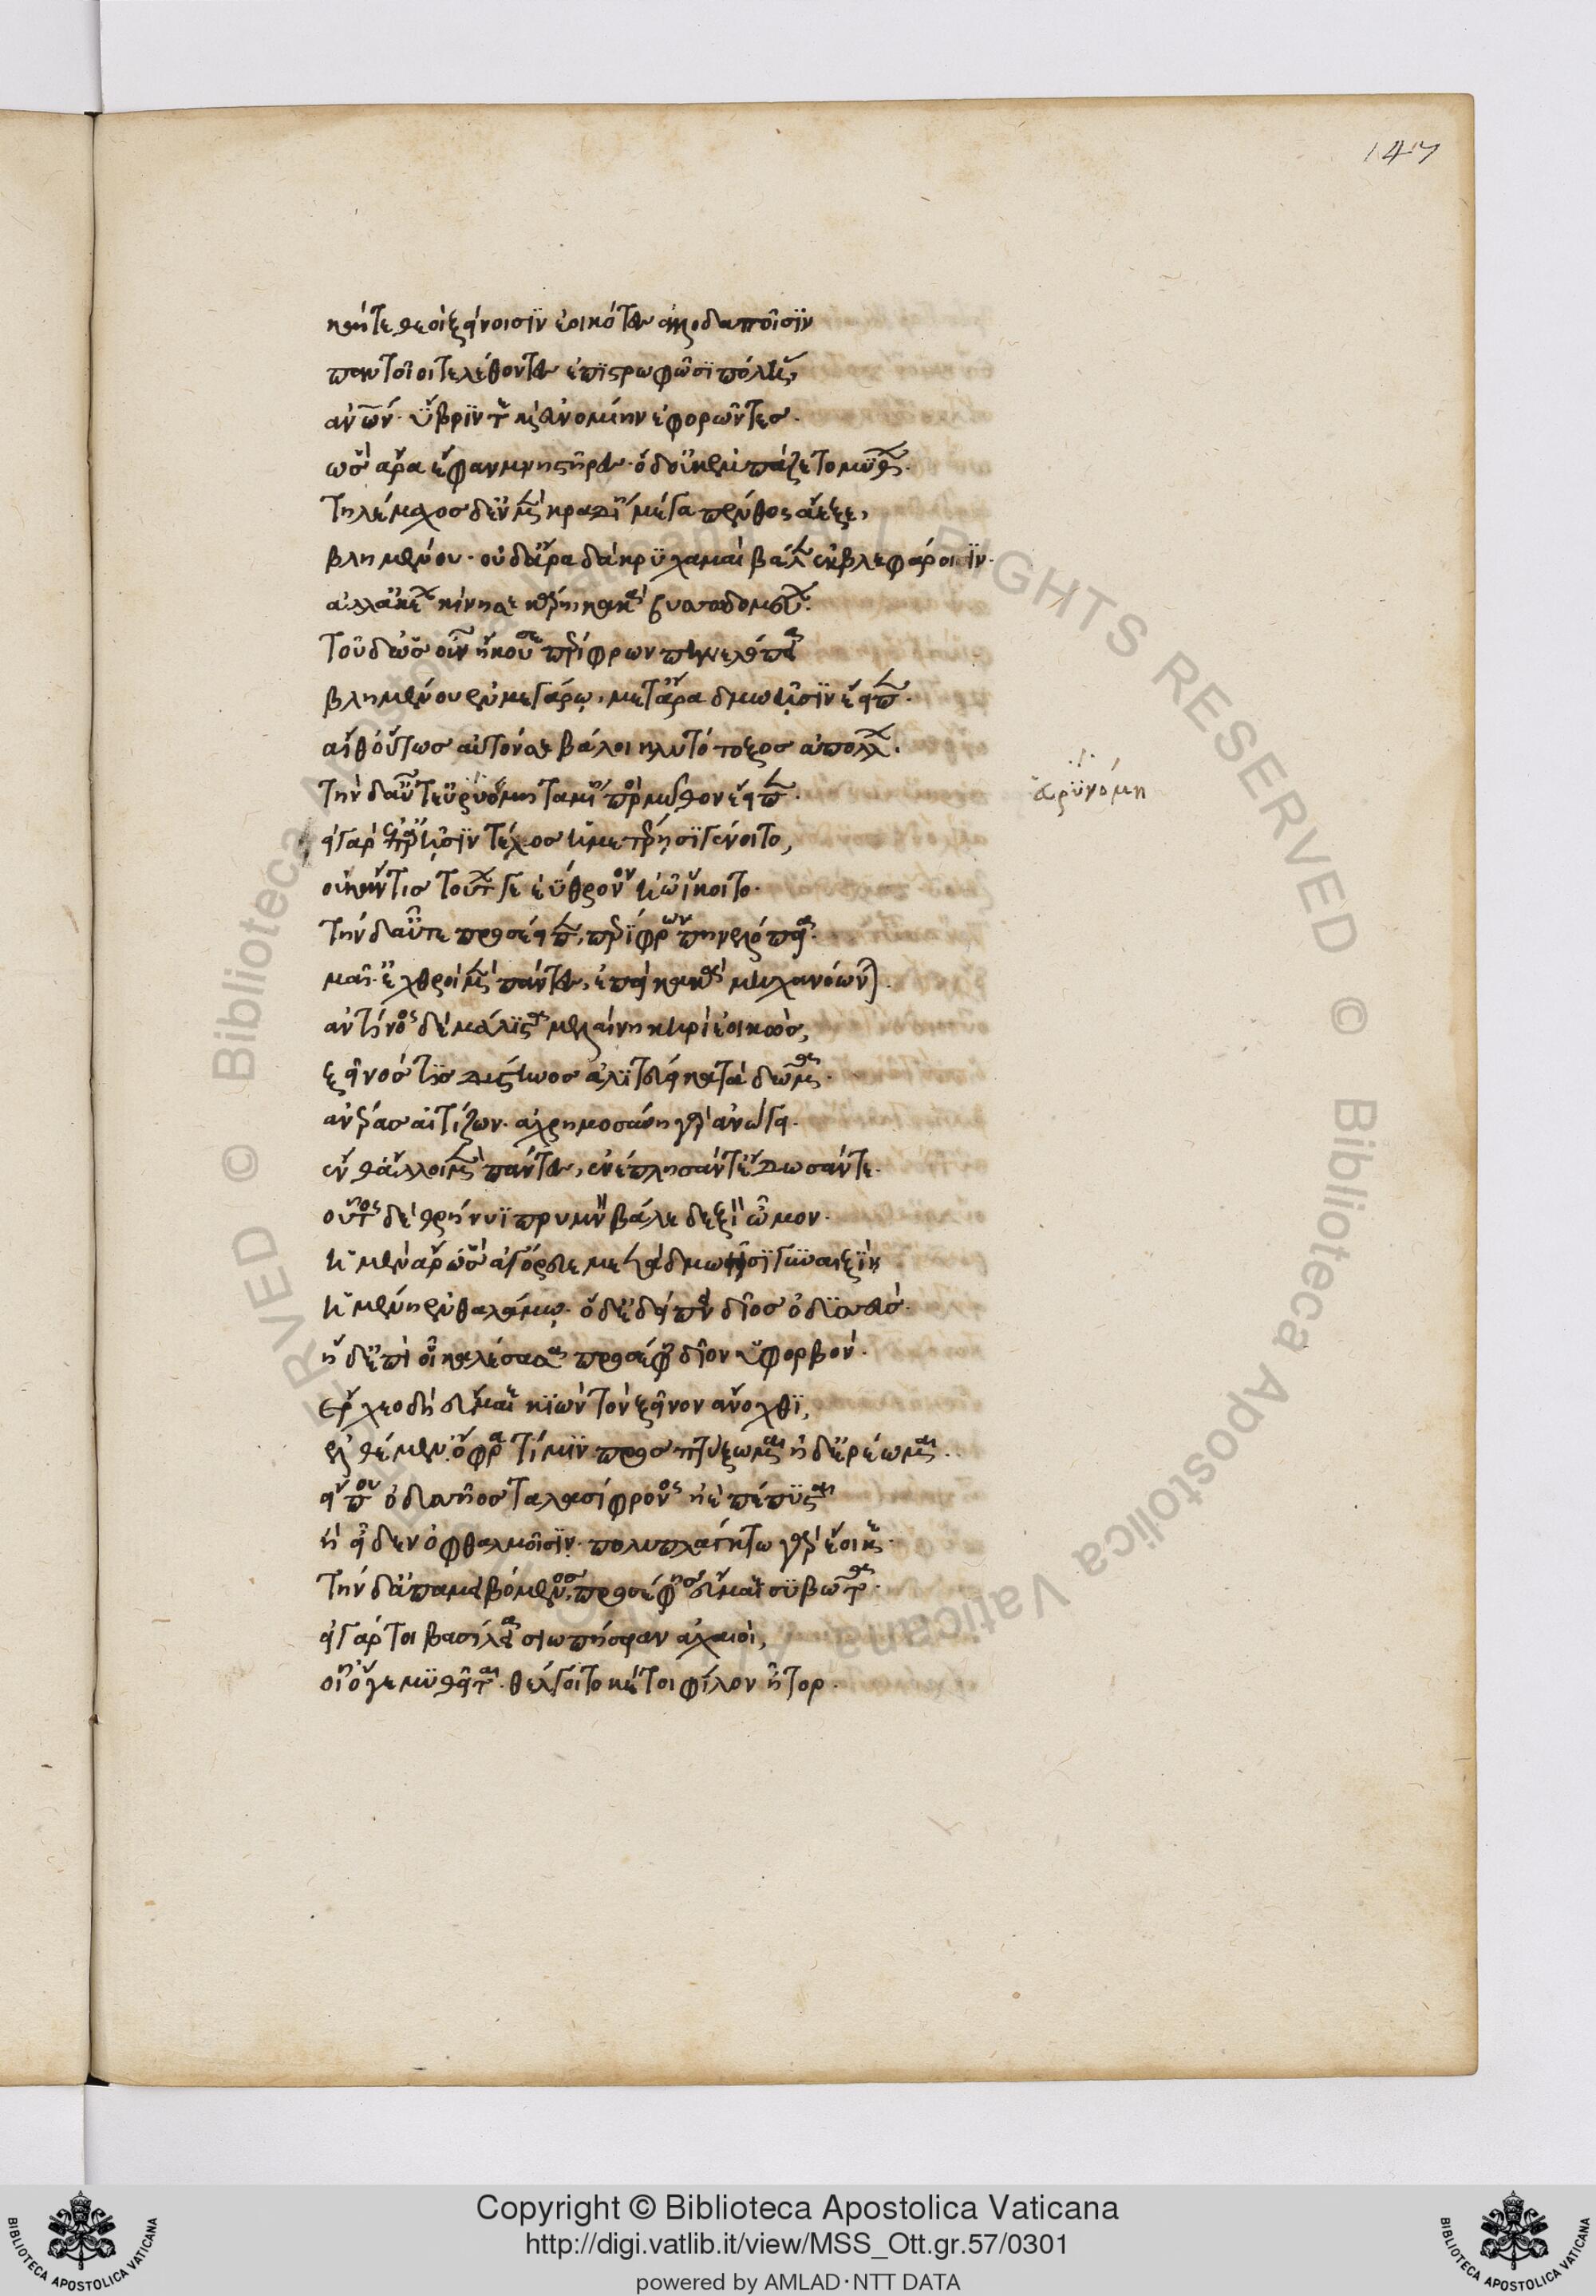 147
καί τε θεοὶ ξείνοισϊν ἐοικότες ἀλλοδαποῖσϊν
παντοῖοι τελέθοντες ἐπϊστρωφῶσϊ πόληας,
ἀνων. ὕβρϊν τε καὶ εὐνομίην ἐφορῶντες.
ὣς ἄρα ἔφαν μνηστῆρες. ὁ δ οὐκ ἐμπάζετο μύθων.
τηλέμαχος δ ἐν μὲν κραδίη μέγα πένθος ἄεξε,
βλημένου. οὐδ ἄρα δάκρϋ χαμαὶ βάλεν ἐκ βλεφάροιϊν.
ἀλλ ἀκέων κίνησε κάρη κακὰ βυσσοδομεύων.
τοῦ δ ὡς οὖν ἤκουσε περίφρων πηνελόπεια
βλημένου ἐν μεγάρω, μετ ἄρα δμωῆσϊν ἔειπεν.
αἴθ οὕτως αὐτόν σε βάλοι κλυτότοξος ἀπόλλων.
τὴν δ αὖτ εὐρϋνόμη ταμίη πρὸς μῦθον ἔειπεν.
εὐρϋνόμη
εἰ γὰρ ἐπ ἀρῆσϊν τέλος ἡμετέρησϊ γένοιτο,
οὐκ ἄν τις τούτων γε ἐΰθρονον ἠῶ ἵκοιτο.
τὴν δ αὖτε προσέειπεν, περίφρων πηνελόπεια.
μαῖ. ἐχθροὶ μὲν πάντες, ἐπεὶ κακὰ μηχανόωνται.
ἀντίνοος δὲ μάλϊστα μελαίνη κηρὶ ἔοικεν,
ξεῖνός τϊς δύστηνος ἀλϊτεύει κατὰ δῶμα.
ἀνέρας αἰτίζων. ἀχρημοσύνη γὰρ ἀνώγει.
ἔνθ ἄλλοι μὲν πάντες, ἐνέπλησάν τ ἔδωσάν τε.
οὗτος δὲ θρήνυϊ πρυμνὸν βάλε δεξϊὸν ὦμον.
ἡ μὲν ἄρ ὣς ἀγόρευε μετὰ δμωῆσϊ γυναιξϊν
ἡμένη ἐν θαλάμω. ὁ δ ἐδείπνει δῖος ὀδϋσσεύς.
ἡ δ ἐπὶ οἷ καλέσασα προσέφη δῖον ὑφορβόν.
ἔρχεο δὴ εὔμαιε κϊὼν τὸν ξεῖνον ἄνωχθϊ,
ἐλθέμεν. ὄφρα τί μϊν προσπτύξωμαι ἠδ ἐρέωμαι.
εἴ που ὀδυσσῆος ταλασίφρονος ἠὲ πέπϋσται
ἢ εἶδεν ὀφθαλμοῖσϊν. πολυπλάγκτω γὰρ ἔοικε.
τὴν δ ἀπαμειβόμενος προσέφης εὔμαιε σϋβῶτα.
εἰ γάρ τοι βασίλεια σιωπήσειαν ἀχαιοί,
οἷ ὅγε μϋθεῖται. θέλγοιτο κέ τοι φίλον ἦτορ.
Copyright © Biblioteca Apostolica Vaticana
http://digi.vatlib.it/view/MSS_Ott.gr.57/0301
powered by AMLAD·NTT DATA